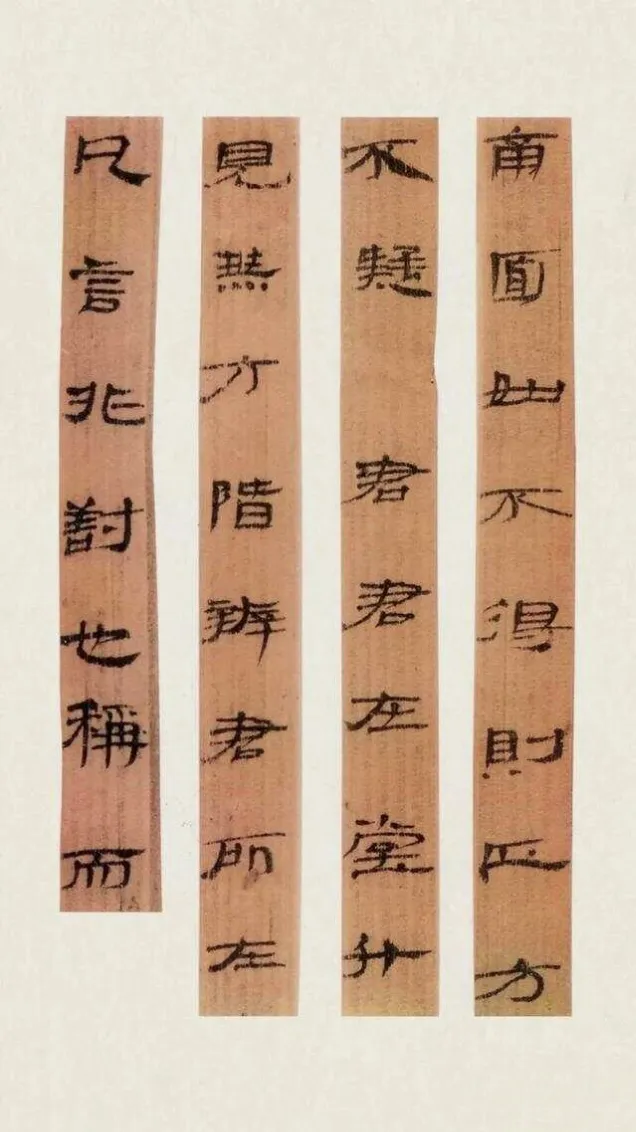 南面如不得則正方
不疑君君在堂升
見無方階辨君所在
凡言非對也稱而